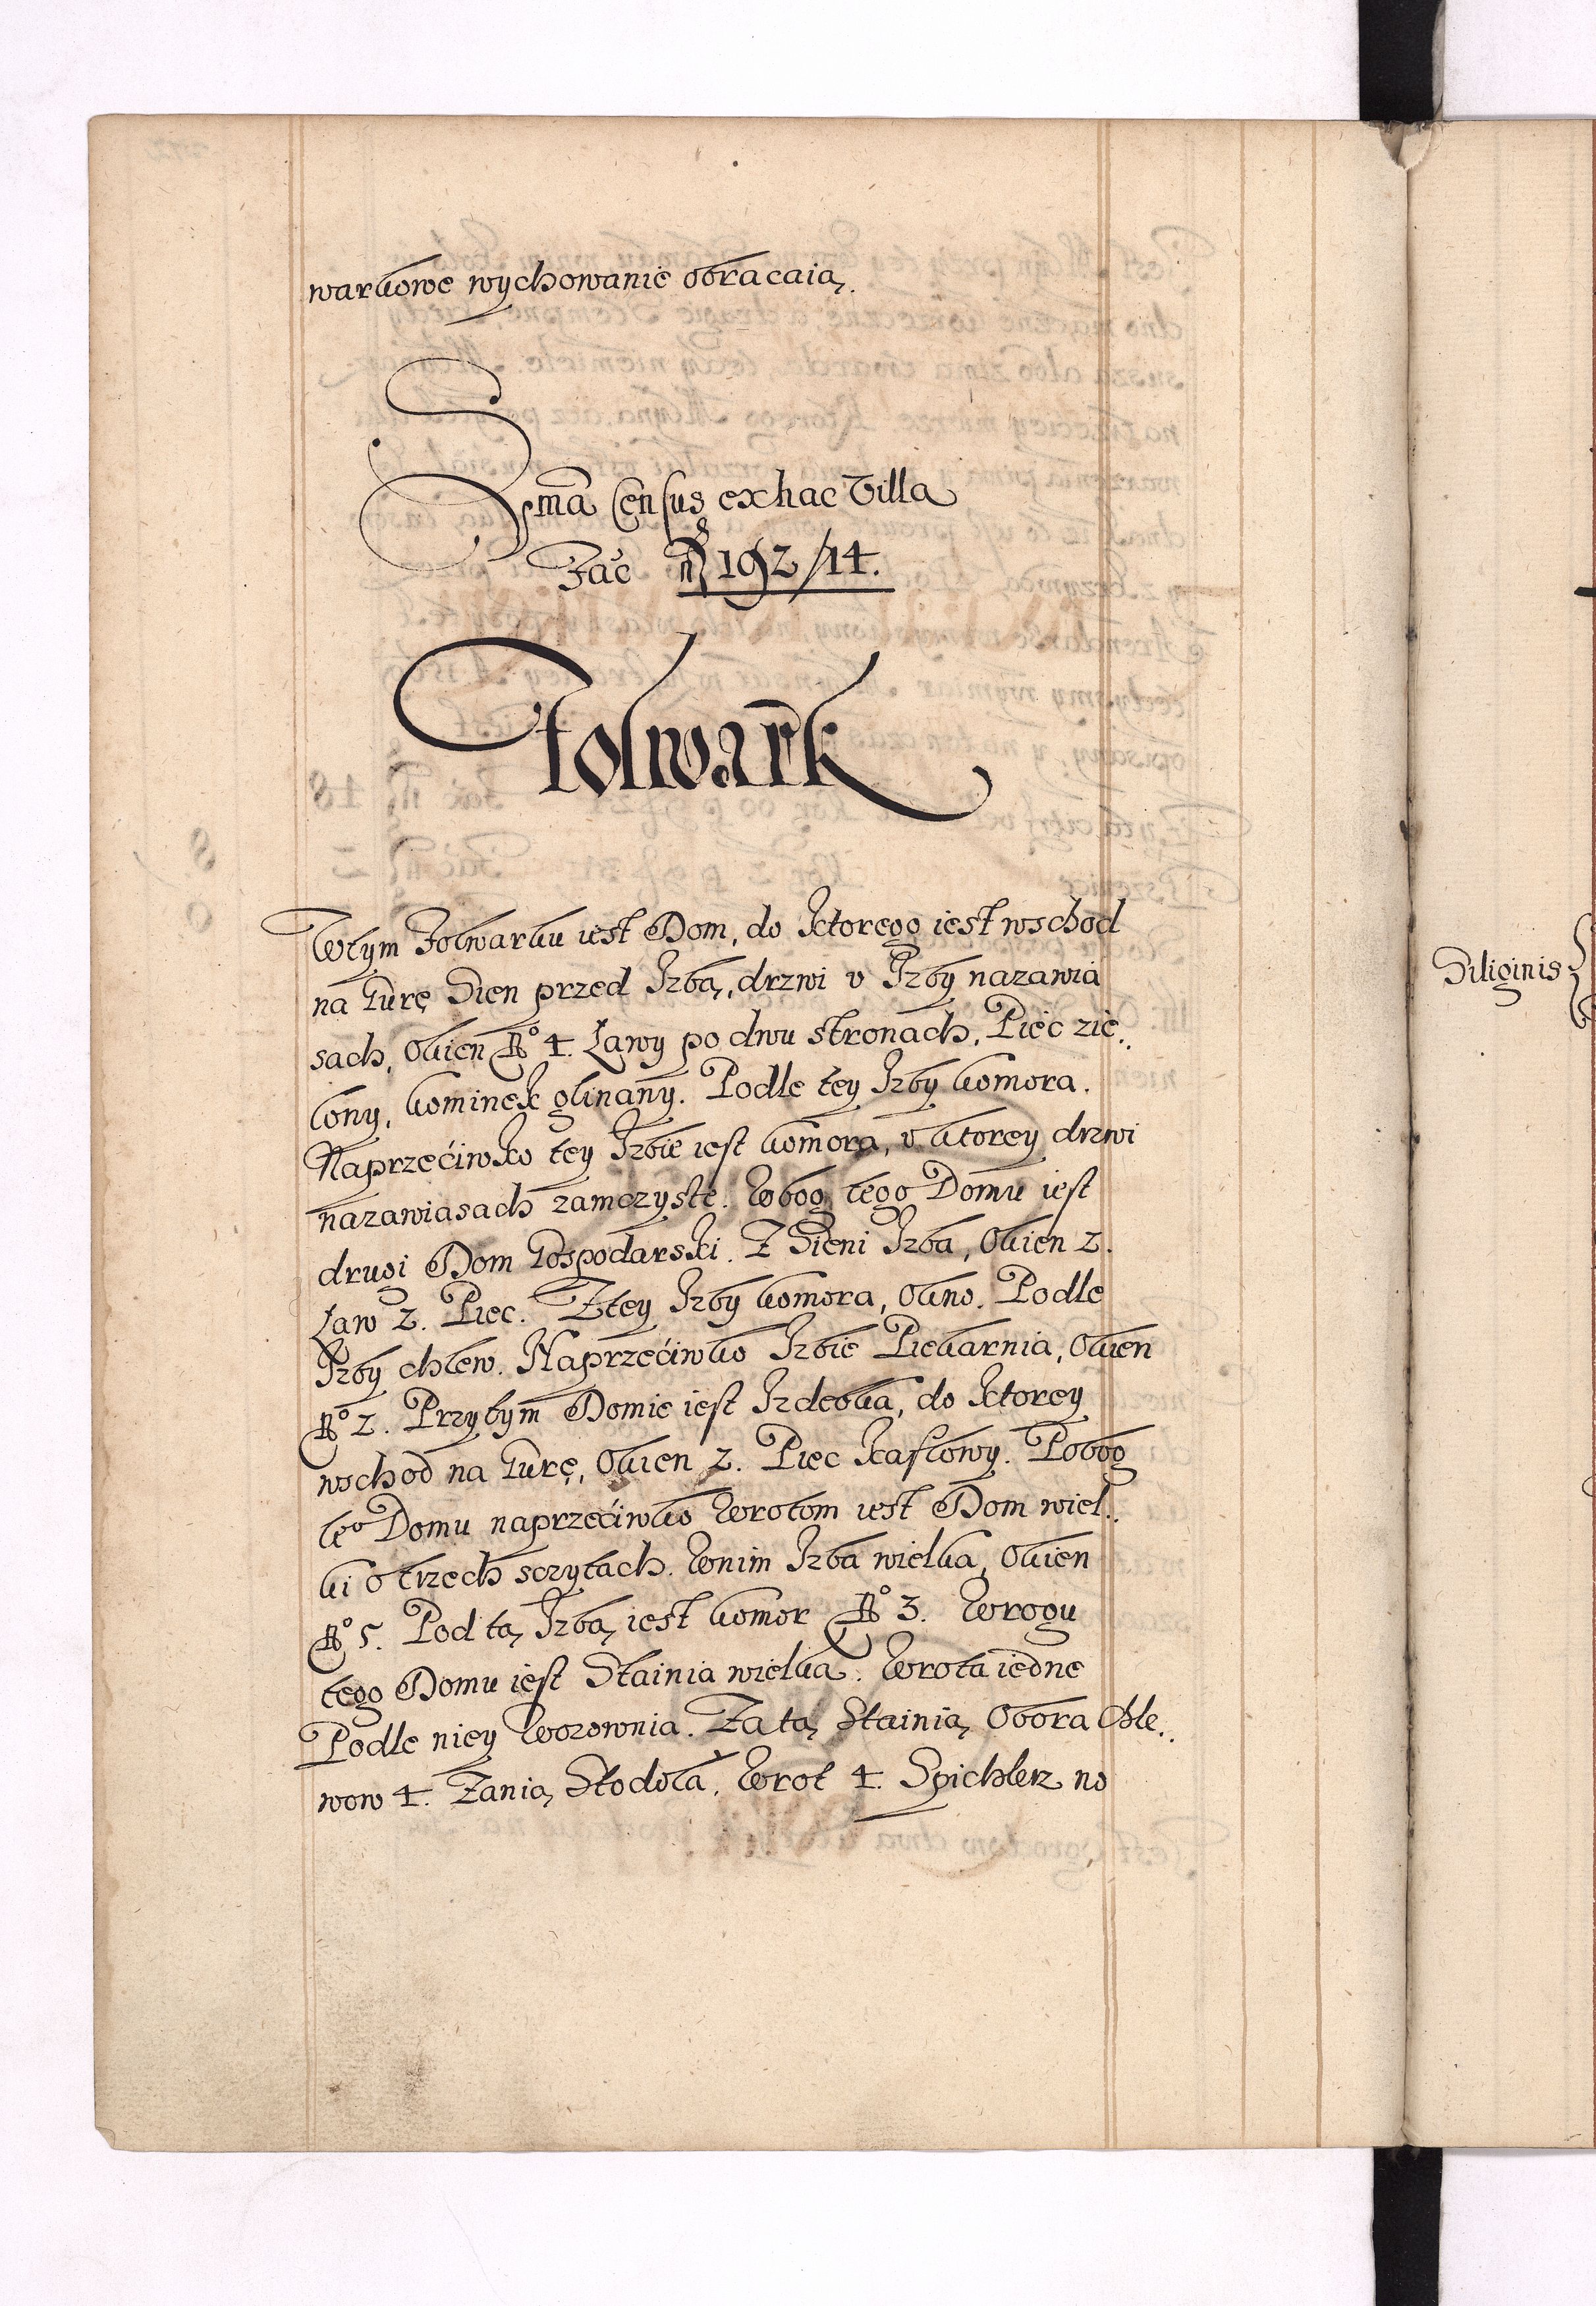 warkowe wychowanie obracaią.
Sma Census ex hac Villa
Fać mr 192/14.
Folwark
W tym Folwarku iest Dom, do ktorego iest wschod
na Gurę Sien przed Izbą, drzwi v Izby na zawia
sach, Okien No 4. Ławy po dwu stronach, Piec zie..
lony, kominek gliniany. Podle tey Izby komora.
Naprzećiwko tey Izbie iest komora, v ktorey drzwi
na zawiasach zamczyste. Wbog tego Domu iest
drugi Dom Gospodarski. Z Sieni Izba, Okien 2.
Law 2. Piec. Z tey Izby komora, Okno. Podle
Izby chlew. Naprzećiwko Izbie Piekarnia, Okien
No 2. Przy tym Domie iest Izdebka, do ktorey
wschod na Gurę, Okien 2. Piec kaflowy. Pobog
tego Domu naprzećiwko Wrotom iest Dom wiel..
ki o trzech sczytach. W nim Izba wielka, Okien
No 5. Pod tą Izbą iest komor No 3. W rogu
tego Domu iest Stainia wielka. Wrota iedne
Podle niey Wozownia. Za tą Stainią Obora Chle..
wow 4. Za nią Stodoła, Wrot 4. Spichlerz no
Siliginis